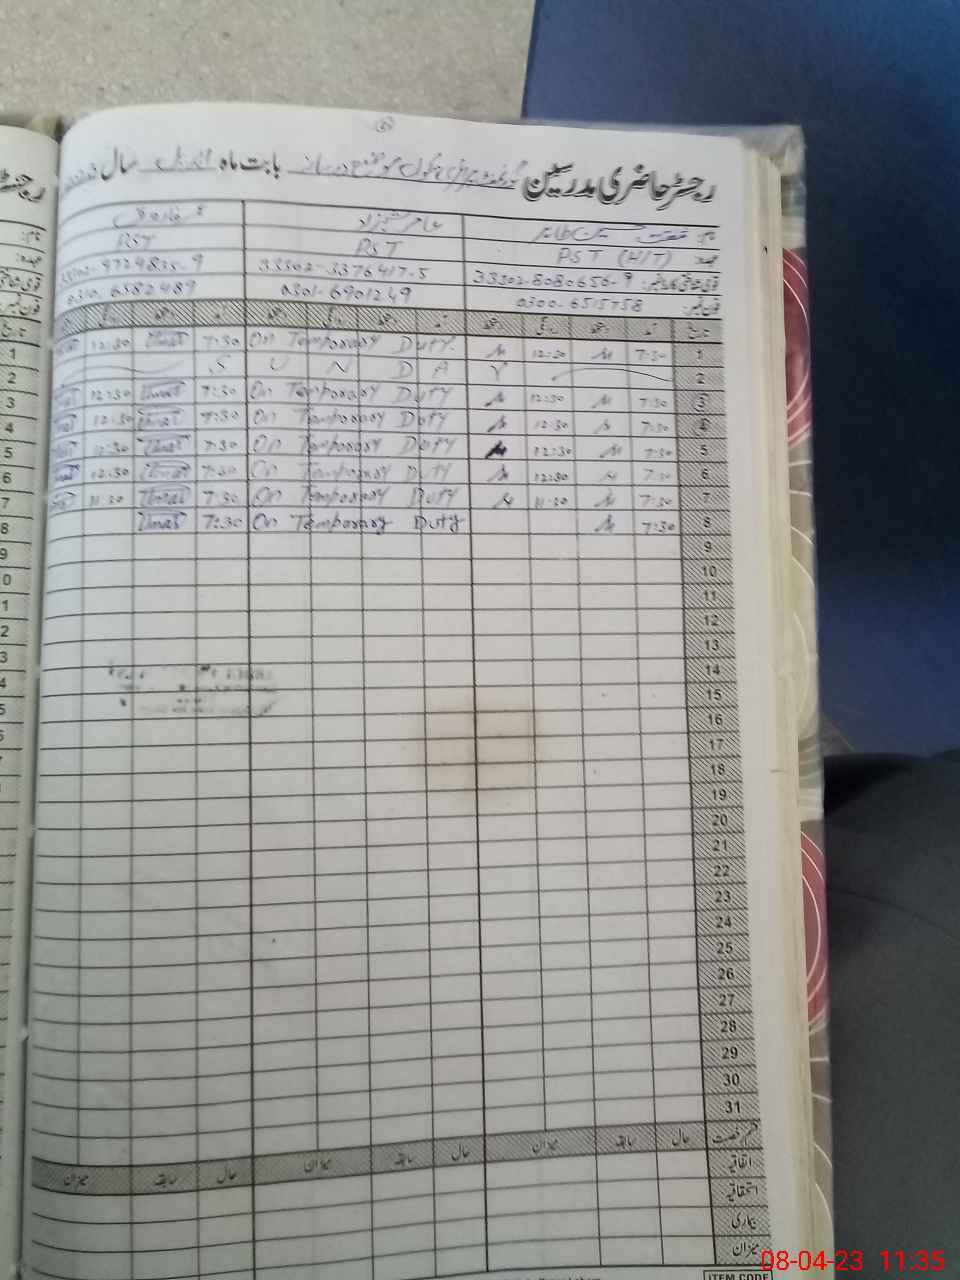 رجسٹر حاضری مدرسین گورنمنٹ پرائمری سکول بابت ماه اپریل سال
نام: شفقت حسین طاہر عامر شہزاد عمر فاروق
عہدہ: PST (H/T) PST PST
قومی شناختی کارڈ نمبر: 33302-8080656-9 33302-3376417-5 33302-9724835-9
فون نمبر: 0300-6515758 0301-6901249 0310-6582489
تاریخ آمد دستخط روانگی دستخط آمد دستخط روانگی دستخط آمد دستخط روانگی
1 7:30 12:30 On Temporary Duty. 7:30 Umar 12:30
2 S U N D A Y
3 7:30 12:30 On Temporary Duty 7:30 Umar 12:30
4 7:30 12:30 On Temporary Duty 7:30 Umar 12:30
5 7:30 12:30 On Temporary Duty 7:30 Umar 12:30
6 7:30 12:30 On Temporary Duty 7:30 Umar 12:30
7 7:30 11:30 On Temporary Duty 7:30 Umar 11:30
8 7:30 On Temporary Duty 7:30 Umar
9
10
11
12
13
14
15
16
17
18
19
20
21
22
23
24
25
26
27
28
29
30
31
قسم رخصت حال سابقہ میزان حال سابقہ میزان حال سابقہ میزان
اتفاقیہ
استحقاقیہ
بیماری
میزان
ITEM CODE
08-04-23 11:35